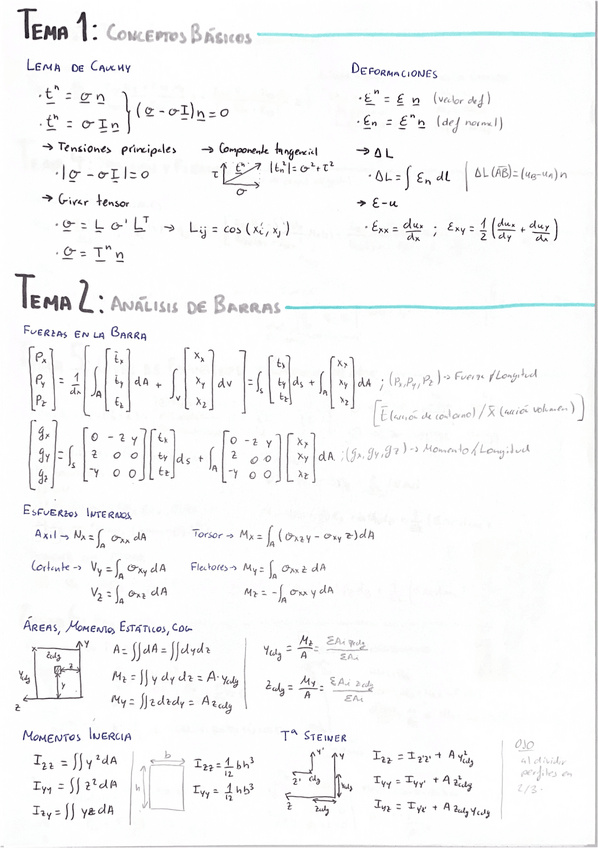 TEMA 1: CONCEPTOS BÁSICOS
LEMA DE CAUCHY
· t^n = σ n
· t^n = σ I n } (σ - σI) n = 0
→ Tensiones principales
· |σ - σI| = 0
→ Componente tangencial
τ t^n |t^n|² = σ² + τ²
σ
→ Girar tensor
· σ = L σ' L^T → Lij = cos (xi', xj)
· σ = T^n n
DEFORMACIONES
· ε^n = ε n (vector def)
· εn = ε^n n (def normal)
→ ΔL
· ΔL = ∫ εn dl | ΔL(AB) = (uB - uA) n
→ ε - u
· εxx = dux/dx ; εxy = 1/2 (dux/dy + duy/dx)
TEMA 2: ANÁLISIS DE BARRAS
FUERZAS EN LA BARRA
[Px Py Pz] = 1/dx [∫A [tx ty tz] dA + ∫V [Xx Xy Xz] dv] = ∫s [tx ty tz] ds + ∫A [Xx Xy Xz] dA ; (Px, Py, Pz) → Fuerza/Longitud
[t (acción de contorno) / X (acción volumen)]
[gx gy gz] = ∫s [0 -z y; z 0 0; -y 0 0] [tx ty tz] ds + ∫A [0 -z y; z 0 0; -y 0 0] [Xx Xy Xz] dA ; (gx, gy, gz) → Momento/Longitud
ESFUERZOS INTERNOS
Axil → Nx = ∫A σxx dA
Torsor → Mx = ∫A (σxz y - σxy z) dA
Cortante → Vy = ∫A σxy dA
Flectores → My = ∫A σxx z dA
Vz = ∫A σxz dA
Mz = -∫A σxx y dA
ÁREAS, MOMENTOS ESTÁTICOS, CDG
y zcdg ycdg z y z
A = ∫∫ dA = ∫∫ dy dz
Mz = ∫∫ y dy dz = A · ycdg
My = ∫∫ z dz dy = A zcdg
ycdg = Mz/A = ΣAi ycdg/ΣAi
zcdg = My/A = ΣAi zcdg/ΣAi
MOMENTOS INERCIA
Izz = ∫∫ y² dA
Iyy = ∫∫ z² dA
Izy = ∫∫ yz dA
b
h
Izz = 1/12 bh³
Iyy = 1/12 hb³
Tª STEINER
y' y
z' cdg
ycdg
z zcdg
Izz = Iz'z' + A y²cdg
Iyy = Iyy' + A z²cdg
Iyz = Iyz' + A zcdg ycdg
OJO
al dividir
perfiles en
2/3.